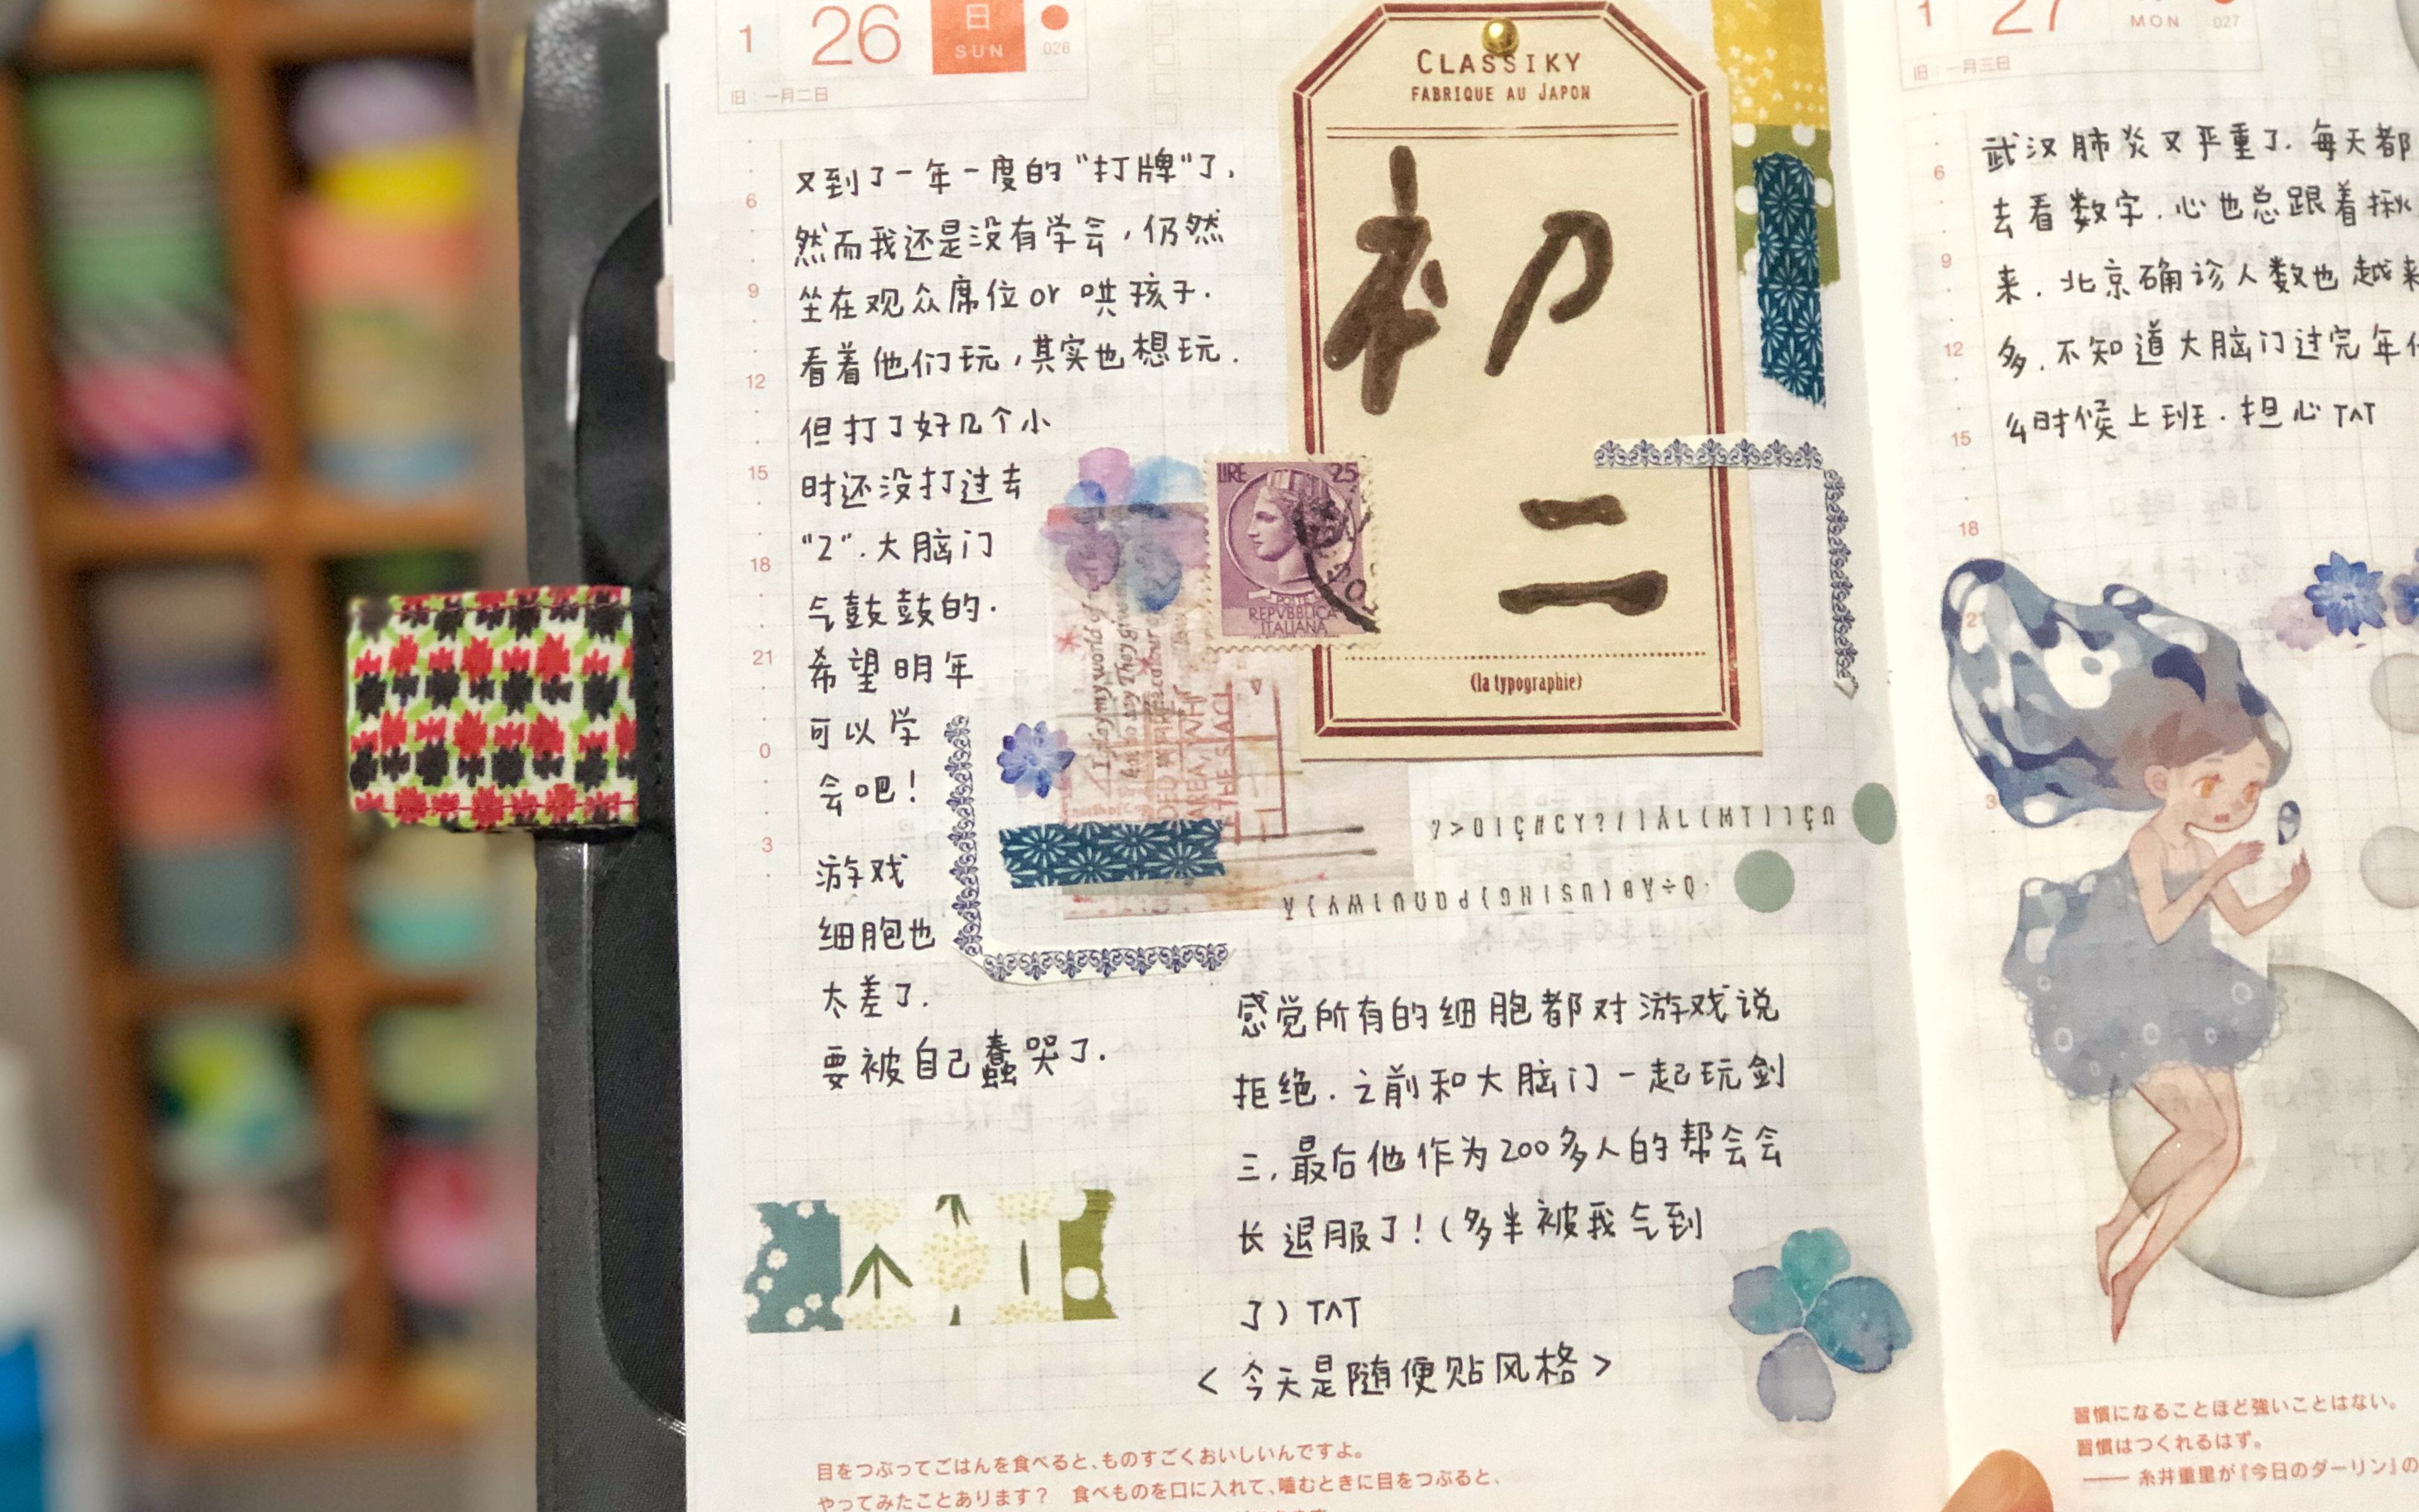 1 26 日 SUN 026
旧:一月二日
又到了一年一度的“打牌”了,
然而我还是没有学会,仍然
坐在观众席位or 哄孩子.
看着他们玩,其实也想玩.
但打了好几个小
时还没打过去
“2”.大脑门
气鼓鼓的.
希望明年
可以学
会吧!
游戏
细胞也
太差了.
要被自己蠢哭了.
6
9
12
15
18
21
0
3
CLASSIKY
FABRIQUE AU JAPON
初
二
(la typographie)
LIRE 25
REPVBBLICA
ITALIANA
感觉所有的细胞都对游戏说
拒绝.之前和大脑门一起玩剑
三,最后他作为200多人的帮会会
长退服了!(多半被我气到
了)TAT
<今天是随便贴风格>
目をつぶってごはんを食べると、ものすごくおいしいんですよ。
やってみたことあります? 食べものを口に入れて、噛むときに目をつぶると、
1 27 MON 027
旧:一月三日
武汉肺炎又严重了.每天都
去看数字.心也总跟着揪
来.北京确诊人数也越来
多.不知道大脑门过完年什
么时候上班.担心TAT
6
9
12
15
18
21
3
習慣になることほど強いことはない。
習慣はつくれるはず。
—— 糸井重里が『今日のダーリン』の